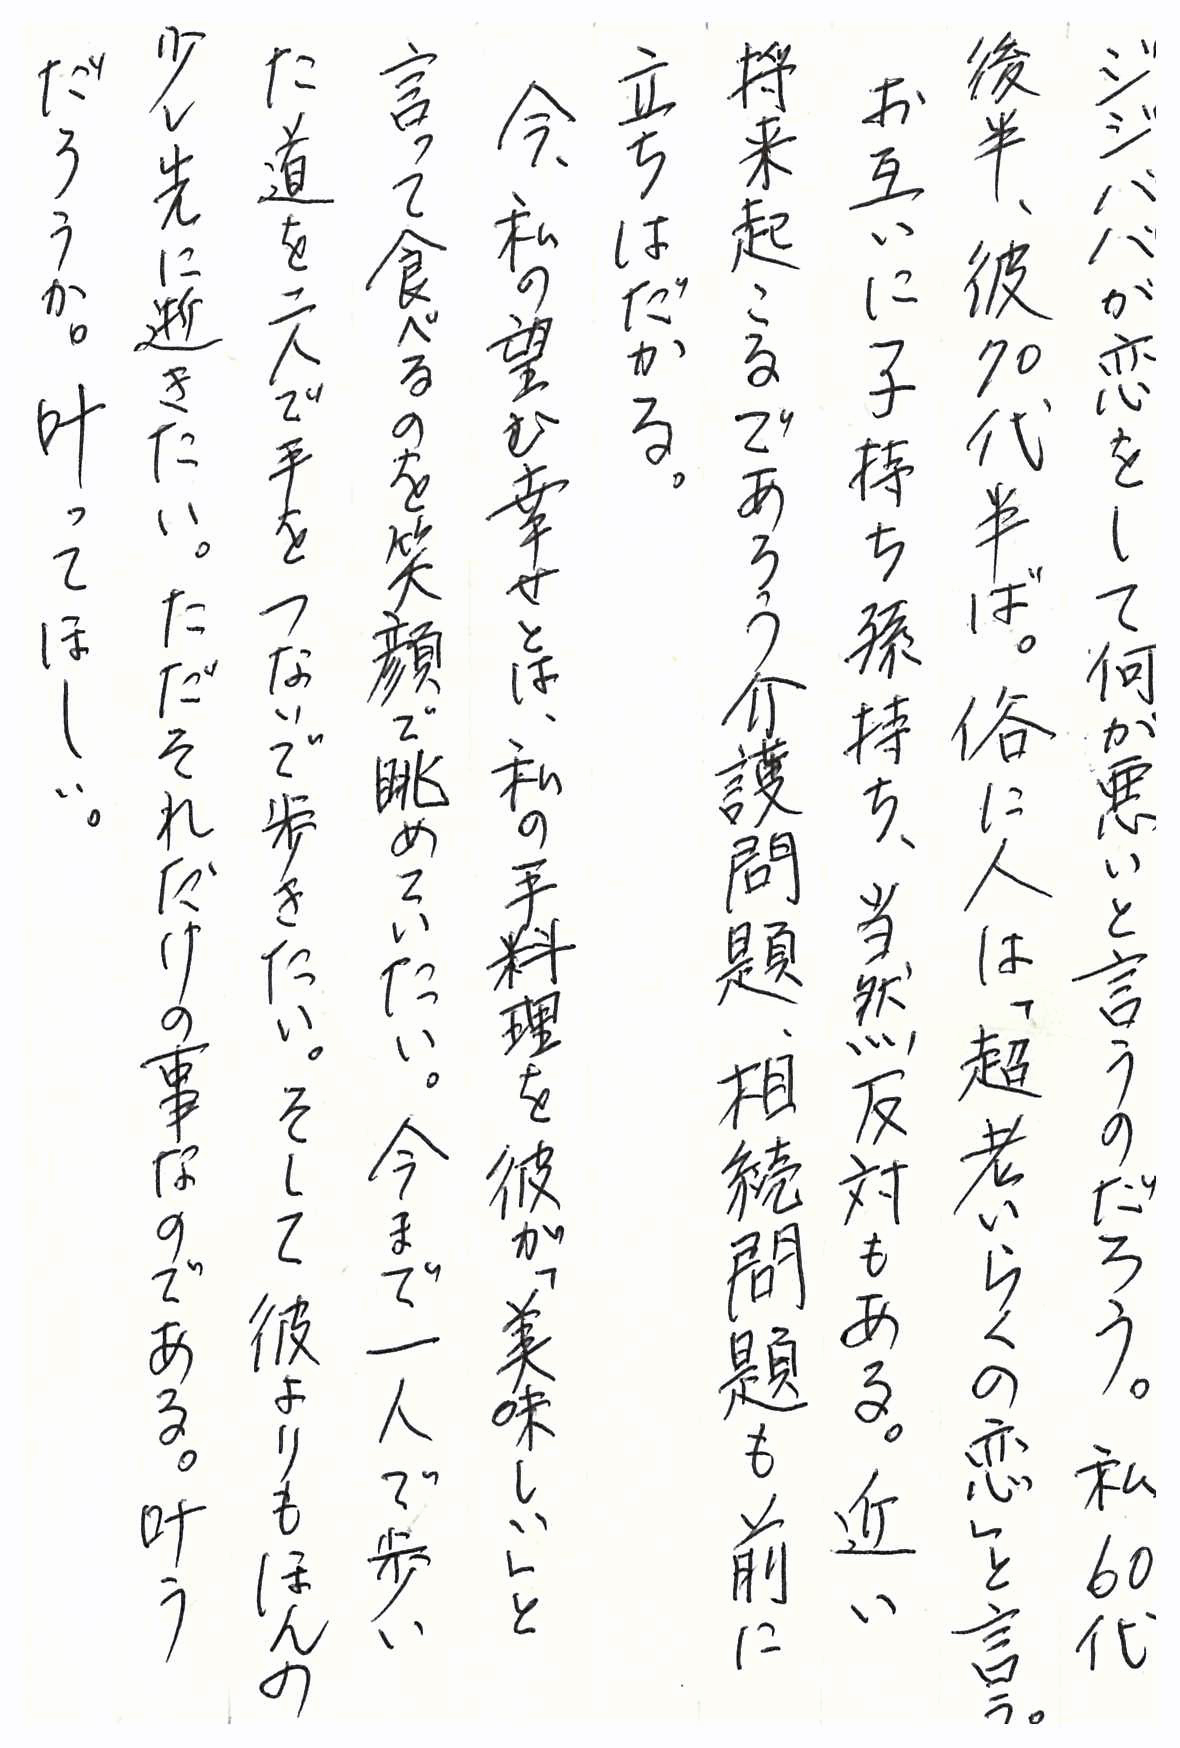 ジジババが恋をして何が悪いと言うのだろう。私60代
後半、彼70代半ば。俗に人は「超老いらくの恋」と言う。
お互いに子持ち孫持ち、当然反対もある。近い
将来起こるであろう介護問題、相続問題も前に
立ちはだかる。
今、私の望む幸せとは、私の手料理を彼が「美味しい」と
言って食べるのを笑顔で眺めていたい。今まで一人で歩い
た道を二人で手をつないで歩きたい。そして彼よりもほんの
少し先に逝きたい。ただそれだけの事なのである。叶う
だろうか。叶ってほしい。